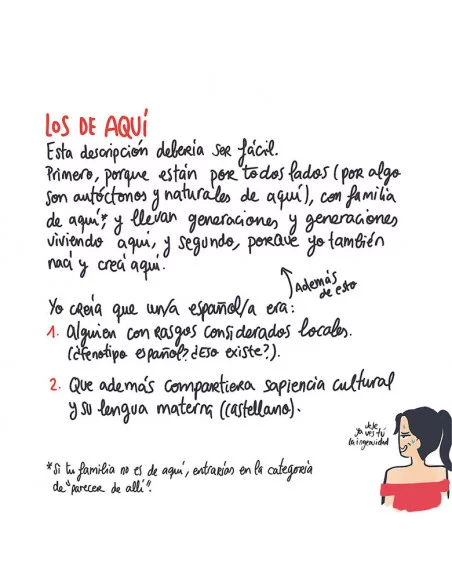 LOS DE AQUÍ
Esta descripción debería ser fácil.
Primero, porque están por todos lados (por algo
son autóctonos y naturales de aquí), con familia
de aquí*, y llevan generaciones y generaciones
viviendo aquí, y segundo, porque yo también
nací y crecí aquí.
Además
de esto
Yo creía que un/a español/a era:
1. Alguien con rasgos considerados locales.
(¿Fenotipo español? ¿Eso existe?).
2. Que además compartiera sapiencia cultural
y su lengua materna (castellano).
jeje
ya ves tú
la ingenuidad
*Si tu familia no es de aquí, entrarías en la categoría
de "parecer de allí".